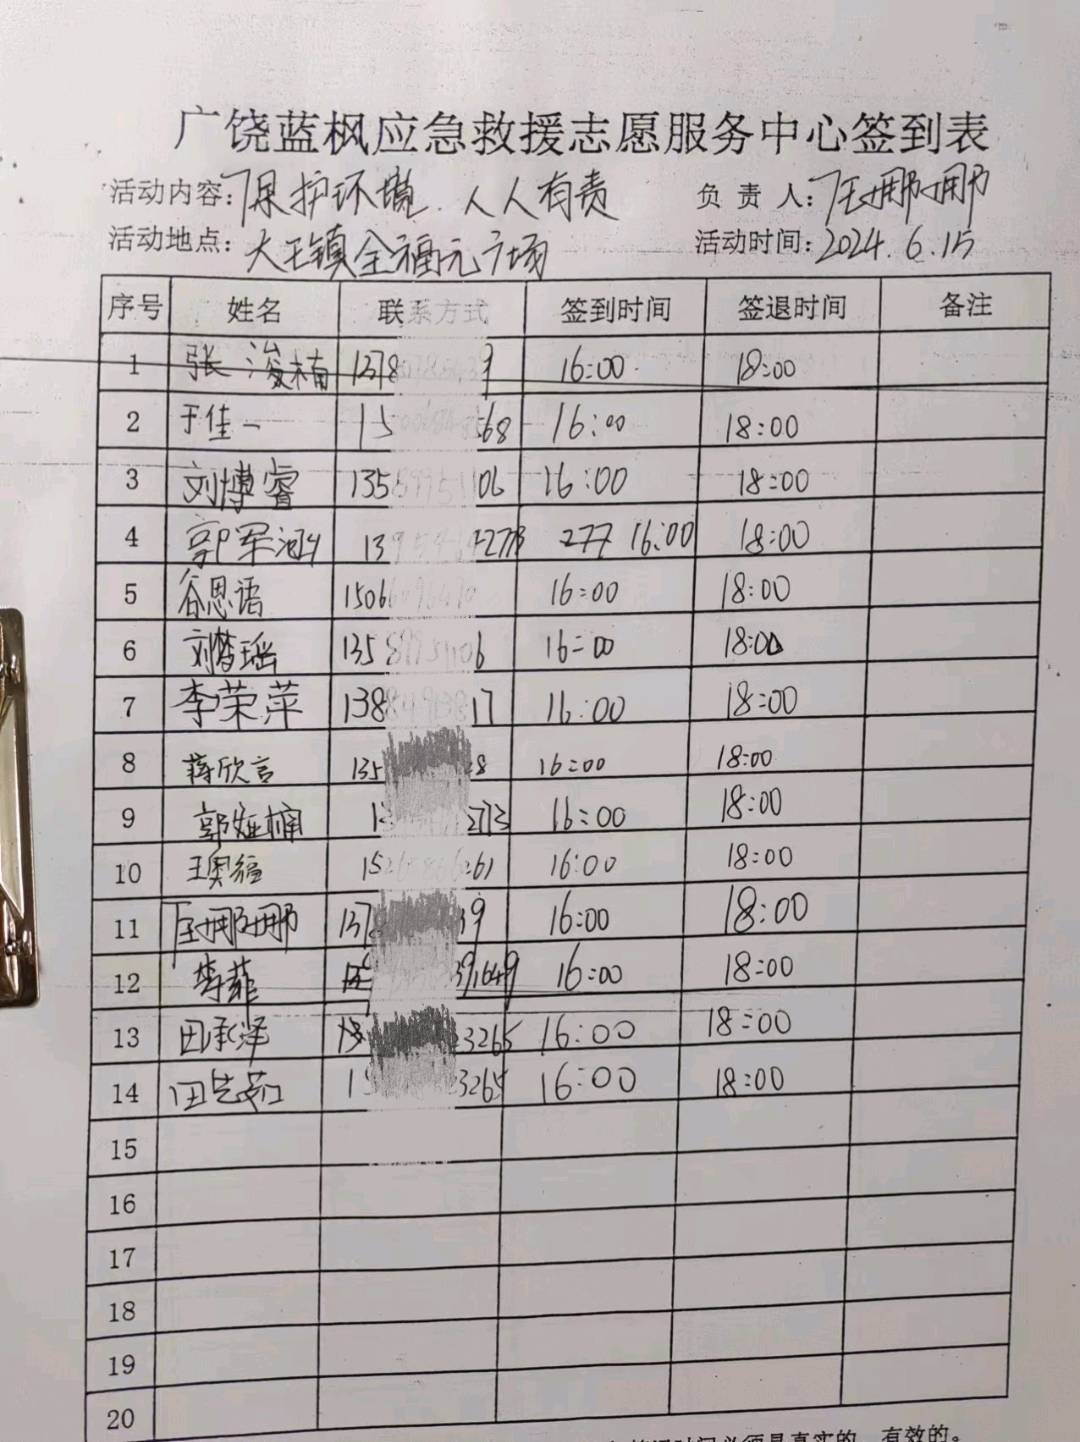 广饶蓝枫应急救援志愿服务中心签到表
活动内容:保护环境.人人有责 负责人:任娜娜
活动地点:大王镇全福元广场 活动时间:2024.6.15
序号 姓名 联系方式 签到时间 签退时间 备注
1 张浚楠 1378 9 16:00 18:00
2 于佳一 15 568 16:00 18:00
3 刘博睿 135 06 16:00 18:00
4 郭军 13 277 16:00 18:00
5 谷思语 1506 16:00 18:00
6 刘梦瑶 135 6 16:00 18:00
7 李荣萍 138 17 16:00 18:00
8 蒋欣言 135 8 16:00 18:00
9 郭娅楠 1 273 16:00 18:00
10 王奥 15 261 16:00 18:00
11 任娜娜 137 39 16:00 18:00
12 李菲 1649 16:00 18:00
13 田承泽 3265 16:00 18:00
14 田艺茹 1 3265 16:00 18:00
15
16
17
18
19
20
时间必须是真实的、有效的。